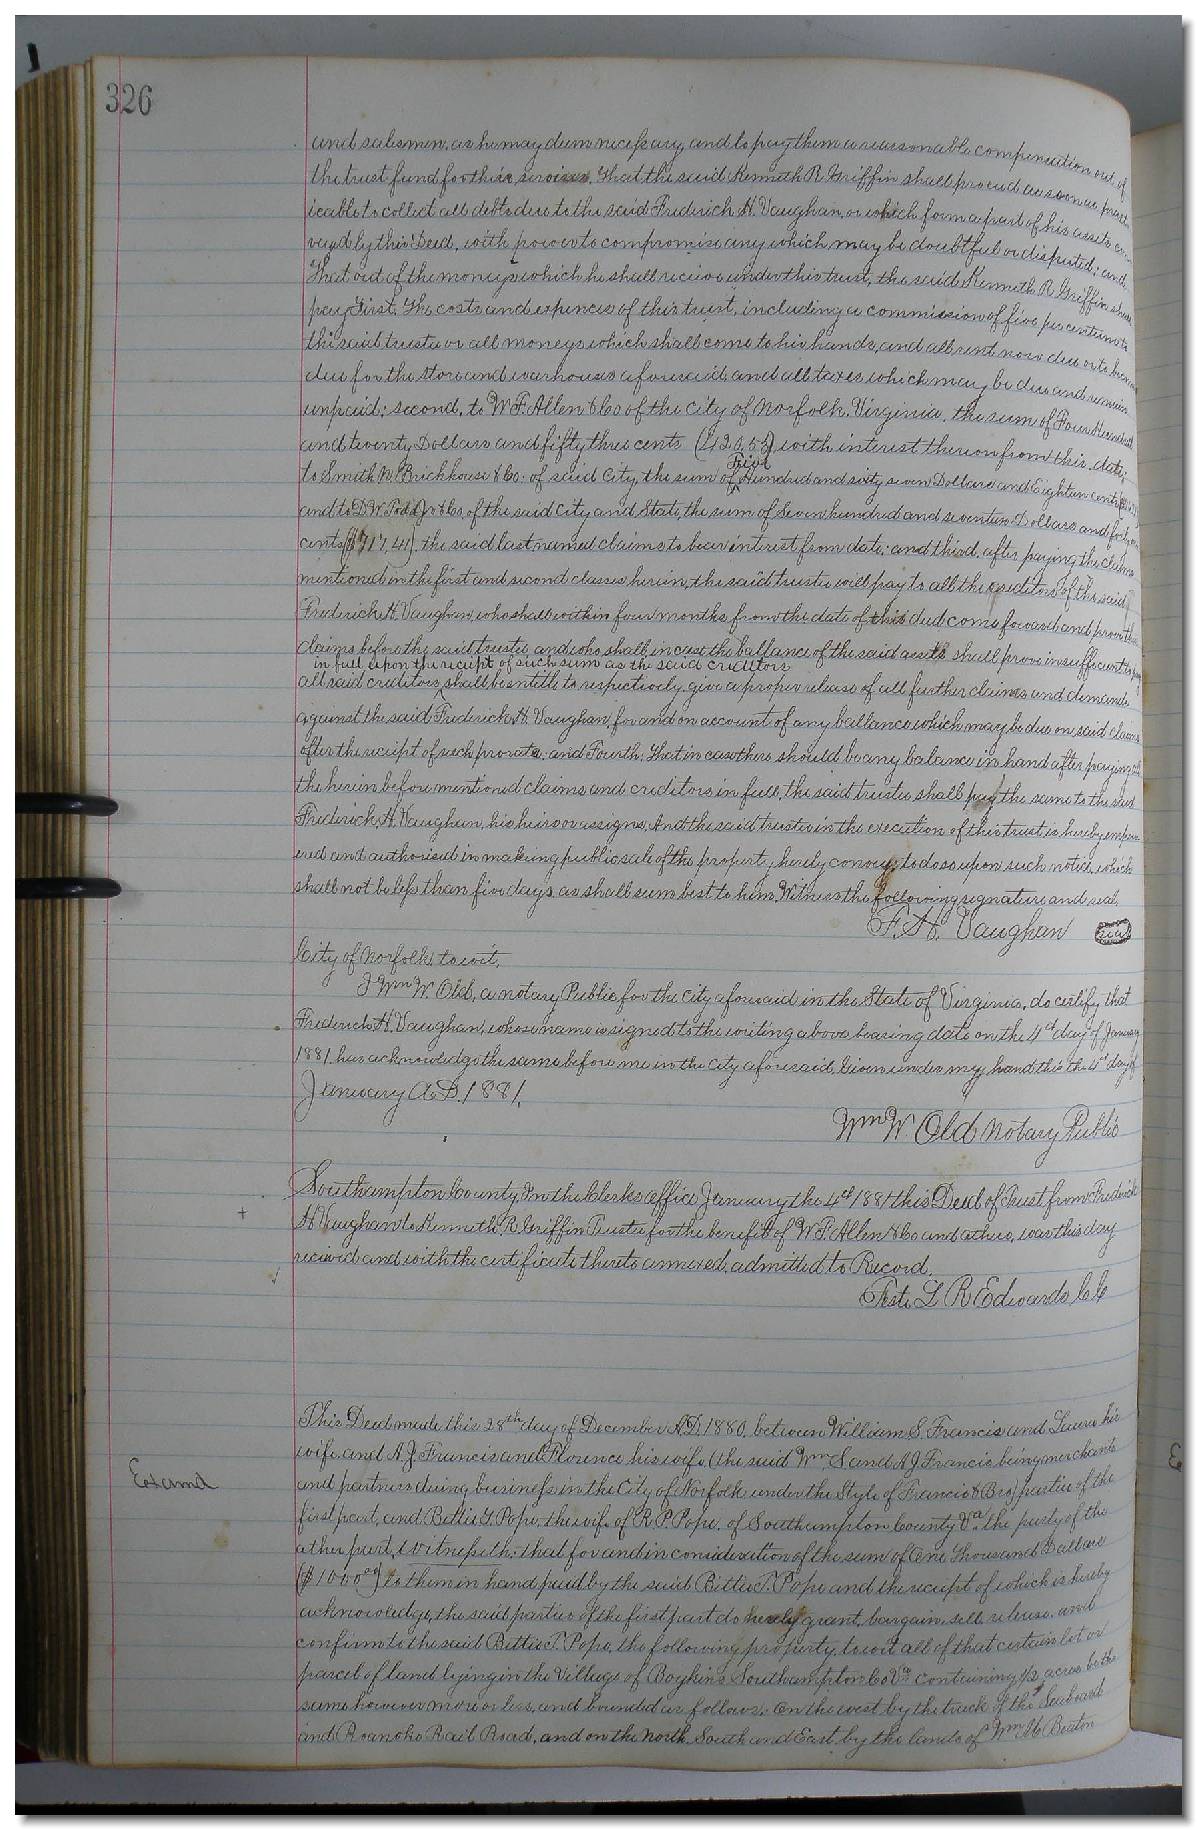 326
and salesmen, as he may deem necessary, and to pay them a reasonable compensation out of
the trust fund for their services. That the said Kenneth R Griffin shall proceed as soon as pract-
icable to collect all debts due to the said Frederick H. Vaughan, or which form a part of his assets con-
veyed by this Deed, with power to compromise any which may be doubtful or disputed; and
That out of the moneys which he shall receive under this trust, the said Kenneth R Griffin shall
pay First, The costs and expences of this trust, including a commission of five per centum to
the said trustee on all moneys which shall come to his hands, and all rent now due or to become
due for the store and warehouse aforesaid and all taxes which may be due and remain
unpaid; second, to W F Allen & Co of the City of Norfolk, Virginia, the sum of Four Hundred
and twenty Dollars and fifty three cents with interest thereon from this date;
Five
to Smith N Brickhouse & Co. of said City, the sum of Hundred and sixty seven Dollars and Eighteen cents
and to D. W. Todd Jr & Co of the said city and State, the sum of Seven hundred and seventeen Dollars and forty one
cents ($717.41) the said last named claims to bear interest from date; and third, after paying the claims
mentioned in the first and second classes herein, the said trustee will pay to all the creditors of the said
Frederick H. Vaughan, who shall within four months from the date of this deed come forward and prove their
claims before the said trustee, and who shall, in case the ballance of the said assets shall prove insufficient to pay
in full upon the receipt of such sum as the said creditors
all said creditors, shall be entitle to respectively, give a proper release of all further claims and demands
against the said Frederick H. Vaughan, for and on account of any ballance which may be due on said claims
after the receipt of such prorata, and Fourth, That in case there should be any balance in hand after paying all
the herein before mentioned claims and creditors in full, the said trustee shall pay the same to the said
Frederick H. Vaughan, his heirs or assigns. And the said trustee in the execution of this trust, is hereby empow-
ered and authorised in making public sale of the property hereby convey, to do so, upon such notice, which
shall not be less than five days, as shall seem best to him. Witness the following signature and seal.
F. H. Vaughan seal
City of Norfolk, to wit,
I Wm W. Old, a notary Public for the City aforesaid in the State of Virginia, do certify that
Frederick H. Vaughan, whose name is signed to the writing above bearing date on the 4th day of January
1881. has acknowledge the same before me in the City aforesaid. Given under my hand this the 4th day of
January A.D. 1881.
Wm W. Old Notary Public
Southampton County In the Clerks office January the 4th 1881 this Deed of Trust from Frederick
H Vaughan to Kenneth R. Griffin Trustee for the benefit of W. F. Allen & Co and others, was this day
received and with the certificate thereto annexed, admitted to Record.
Teste L R Edwards C C
This Deed made this 28th day of December A.D. 1880, between William S. Francis and Laura his
wife and A J Francis and Florence his wife (the said Wm S and A J Francis being merchants
Examd
and partners doing business in the City of Norfolk under the Style of Francis & Bro) parties of the
first part, and Bettie T. Pope, the wife of R. P. Pope, of Southampton County Va the party of the
other part, Witnesseth: that for and in consideration of the sum of One Thousand Dollars
($1000.00) to them in hand paid by the said Bettie T. Pope and the receipt of which is hereby
acknowledge, the said parties of the first part do hereby grant, bargain, sell, release, and
confirm to the said Bettie T. Pope, the following property, to wit all of that certain lot or
parcel of land lying in the Village of Boykins Southampton Co Va containing 1/2 acres be the
same however more or less, and bounded as follows: On the west by the track of the Seaboard
and Roanoke Rail Road, and on the North, South and East, by the lands of Wm H Beaton